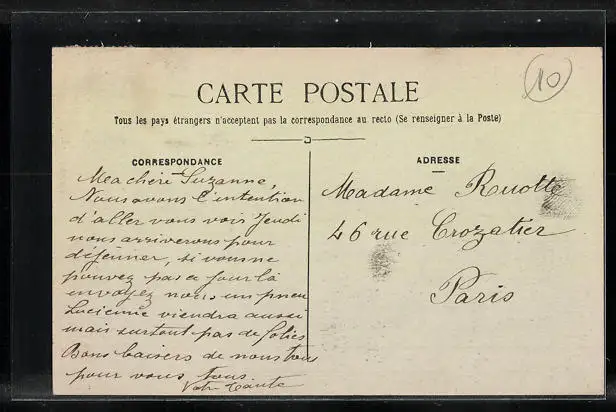 10
CARTE POSTALE
Tous les pays étrangers n'acceptent pas la correspondance au recto (Se renseigner à la Poste)
CORRESPONDANCE
Ma chère Suzanne,
Nous avons l'intention
d'aller vous voir Jeudi
nous arriverons pour
déjeuner, si vous ne
pouvez pas ce jour là
envoyez nous un pneu
Lucienne viendra aussi
mais surtout pas de folies
Bons baisers de nous tous
pour vous tous
Votre Tante
ADRESSE
Madame Ruotte
46 rue Crozatier
Paris